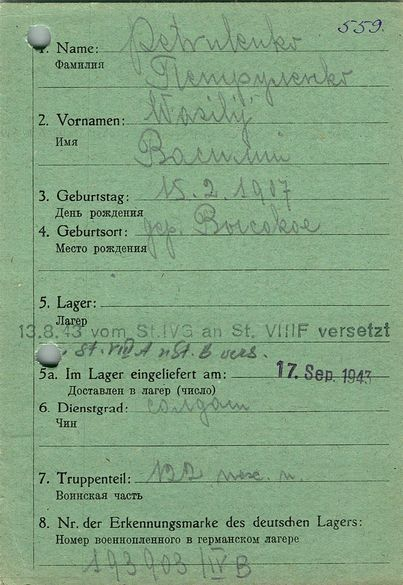 559.
1. Name: Petrulenko
Фамилия
Петруленко
2. Vornamen: Wasilij
Имя
Василий
3. Geburtstag: 15.2.1907
День рождения
4. Geburtsort: дер. Высокое
Место рождения
5. Lager:
Лагерь
13.8.43 vom St.IVG an St. VIIIF versetzt
St. VIII A n St. B vers.
5a. Im Lager eingeliefert am: 17. Sep. 1943
Доставлен в лагер (число)
6. Dienstgrad: солдат
Чин
7. Truppenteil: 122 п.
Воинская часть
8. Nr. der Erkennungsmarke des deutschen Lagers:
Номер военнопленного в германском лагере
193903/IV B